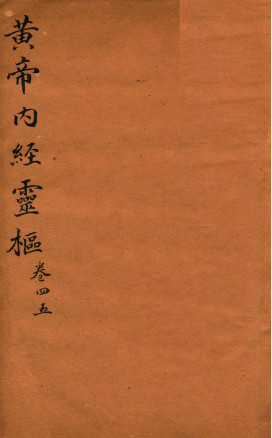 黄帝内経靈樞
卷四五